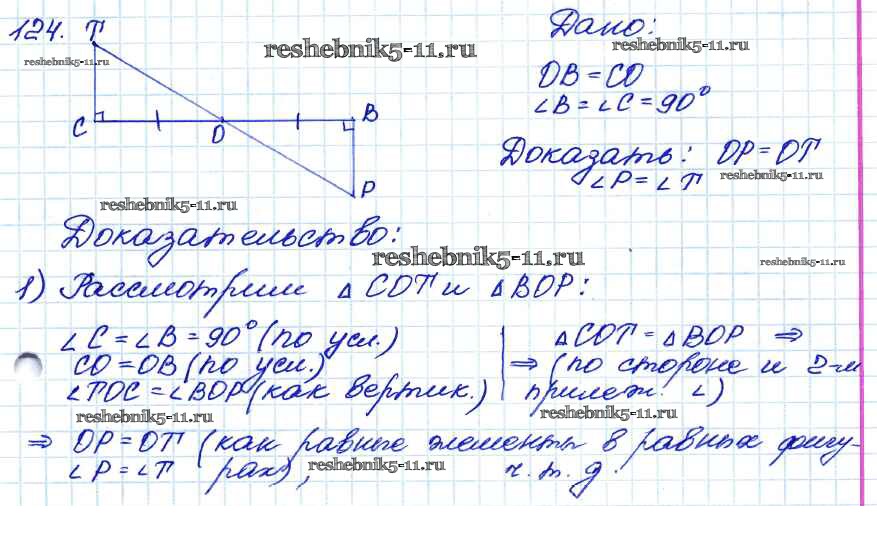 124. T
reshebnik5-11.ru
reshebnik5-11.ru
C O B
P
Дано:
reshebnik5-11.ru
OB = CO
∠B = ∠C = 90°
Доказать: OP = OT
∠P = ∠T
reshebnik5-11.ru
reshebnik5-11.ru
Доказательство:
reshebnik5-11.ru
reshebnik5-11.ru
1) Рассмотрим △ COT и △ BOP:
∠C = ∠B = 90° (по усл.)
CO = OB (по усл.)
∠TOC = ∠BOP (как вертик.)
△COT = △BOP ⇒
⇒ (по стороне и 2-м
прилеж. ∠)
reshebnik5-11.ru
reshebnik5-11.ru
⇒ OP = OT (как равные элементы в равных фигу-
∠P = ∠T рах), ч. т. д.
reshebnik5-11.ru